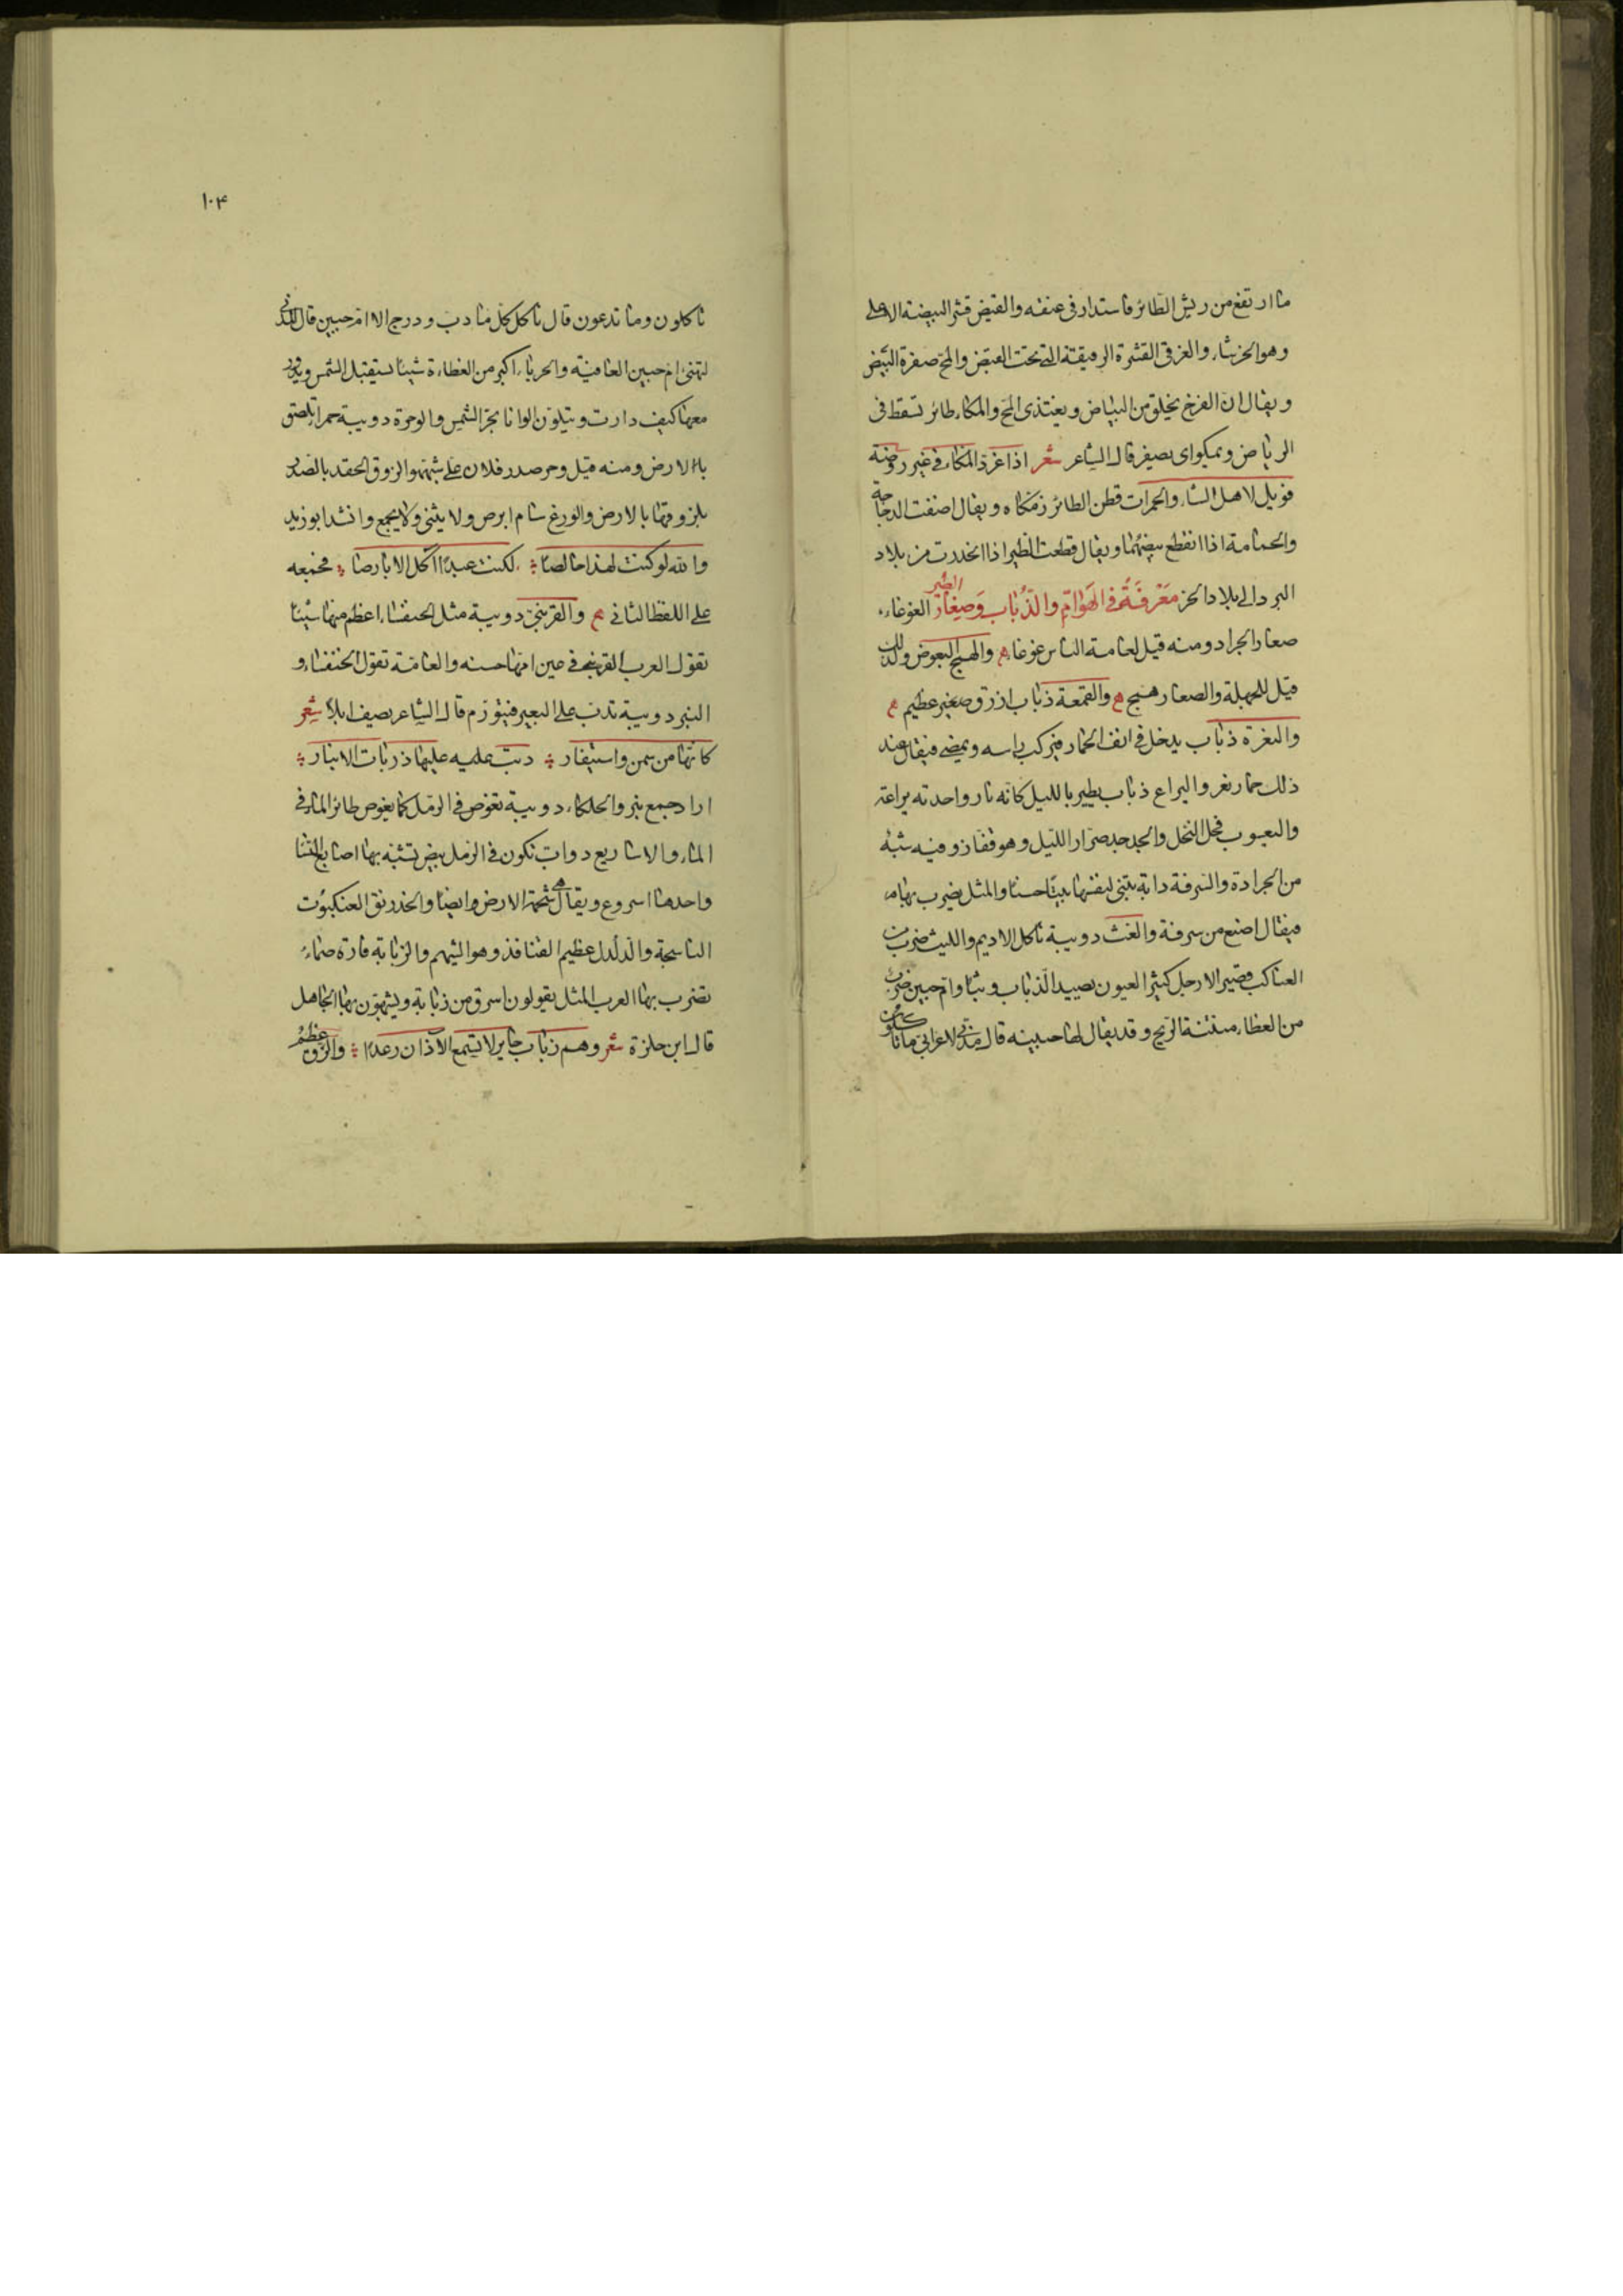 ما ارتفع من ريش الطائر فاستدار في عنقه والقيض قشر البيضة الاعلى
وهو الخرشاء والغرقئ القشرة الرقيقة التي تحت القيض والمح صفرة البيض
ويقال ان الفرخ يخلق من البياض ويغتذى المح والمكاء طائر تسقط في
الرياض ويمكو اى يصفر قال الشاعر شعر اذا غرد المكاء في غير روضة
فويل لاهل الشاء والحمرات قطن الطائر زمكاه ويقال اصفت الدجاجة
والحمامة اذا انقطع بيضهما ويقال قطعت الطير اذا انحدرت من بلاد
البرد الى بلاد الحر معرفة في الهوام والذباب وصغار الطير الغوغاء
صغار الجراد ومنه قيل لعامة الناس غوغاء والهمج البعوض ولذلك
قيل للجهلة والصغار همج والقمعة ذباب ازرق صغير عظيم
والنغرة ذباب يدخل في انف الحمار فيركب راسه ويمضى فيقال عند
ذلك حمار نغر واليراع ذباب يطير بالليل كانه نار واحدته يراعة
واليعسوب فحل النحل والجدجد صرار الليل وهو قفاز وفيه شبه
من الجرادة والسرفة دابة تبتني لنفسها بيتا حسنا والمثل يضرب بها
فيقال اصنع من سرفة والغث دويبة تاكل الاديم والليث ضرب من
العناكب قصير الارجل كثير العيون يصيد الذباب وثبا وام حبين ضرب
من العظاء منتنة الريح وقد يقال لها حبينه قال مدني لاعرابي ما تا
١٠٤
تاكلون وما تدعون قال تاكل كل ما دب ودرج الا ام حبين قال المدني
لتهنئ ام حبين العافية والحرباء اكبر من العظاءة شيئا يستقبل الشمس ويدور
معها كيف دارت ويتلون الوانا بحر الشمس والوحرة دويبة حمرا تلصق
باالارض ومنه قيل وحر صدر فلان على شبهوا لزوق الحقد بالصدر
بلزوقها بالارض والوزغ سام ابرص ولا يثنى ولا يجمع وانشد ابوزيد
والله لو كنت لهذا خالصا لكنت عبدا اكل الابارصا فجمعه
على اللفظ الثاني والقرنبى دويبة مثل الخنفساء اعظم منها شيئا
تقول العرب القرنبى في عين امها حسنه والعامة تقول الخنفساء و
النبر دويبة تدب على البعير فيتورم قال الشاعر يصف ابلا شعر
كانها من سمن واستيفار دبت عليه عليها ذربات الانبار
اراد جمع نبر والحلكاء دويبة تغوص في الرمل كما يغوص طائر الماء في
الماء والاساريع دواب تكون في الرمل بيض تشبه بها اصابع النساء
واحدها اسروع ويقال هي شحمة الارض وايضا والخدرنق العنكبوت
الناسجة والدلدل عظيم القنافذ وهو الشيهم والزبابة فارة صماء
تضرب بها العرب المثل يقولون اسرق من زبابة ويشبهون بها الجاهل
قال ابن حلزة شعر وهم زباب حاير لا تسمع الآذان رعدا والزق عظم